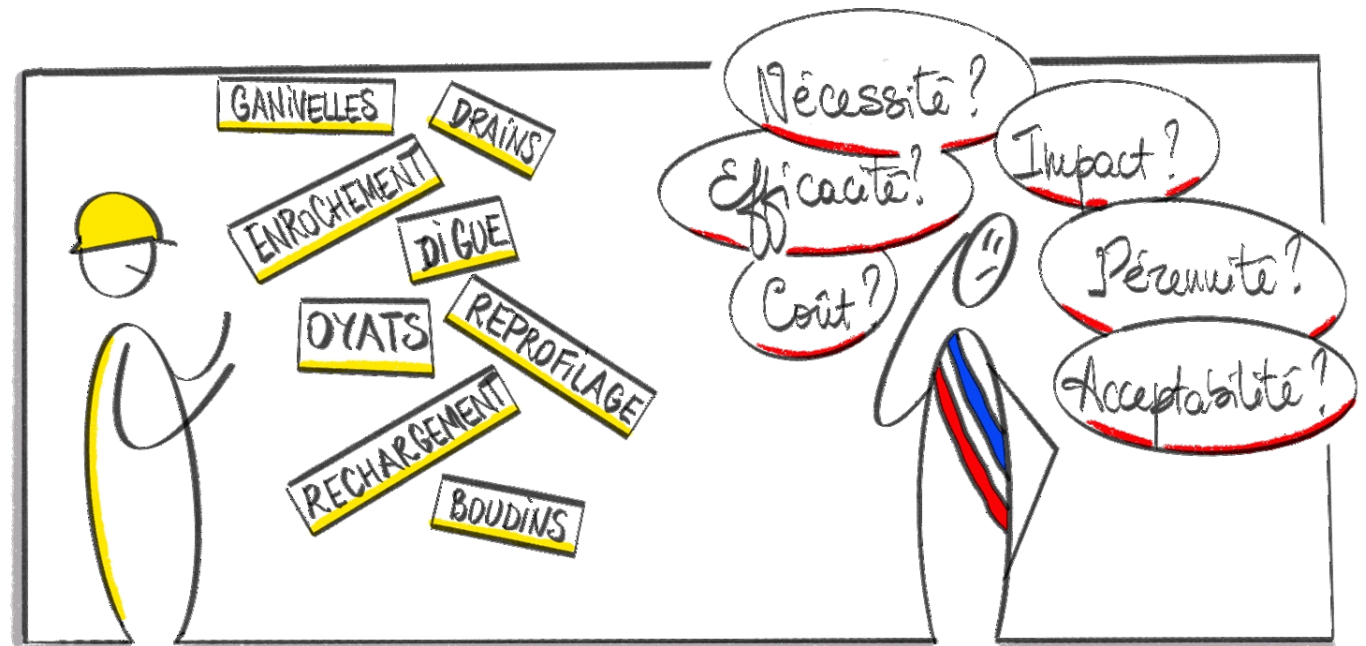 GANIVELLES
DRAINS
ENROCHEMENT
DIGUE
OYATS
REPROFILAGE
RECHARGEMENT
BOUDINS
Nécessité ?
Efficacité ?
Impact ?
Coût ?
Pérennité ?
Acceptabilité ?